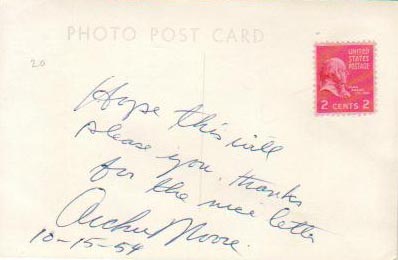 PHOTO POST CARD
20
UNITED
STATES
POSTAGE
2 CENTS 2
Hope this will
please you. thanks
for the nice letter
Archie Moore.
10-15-54